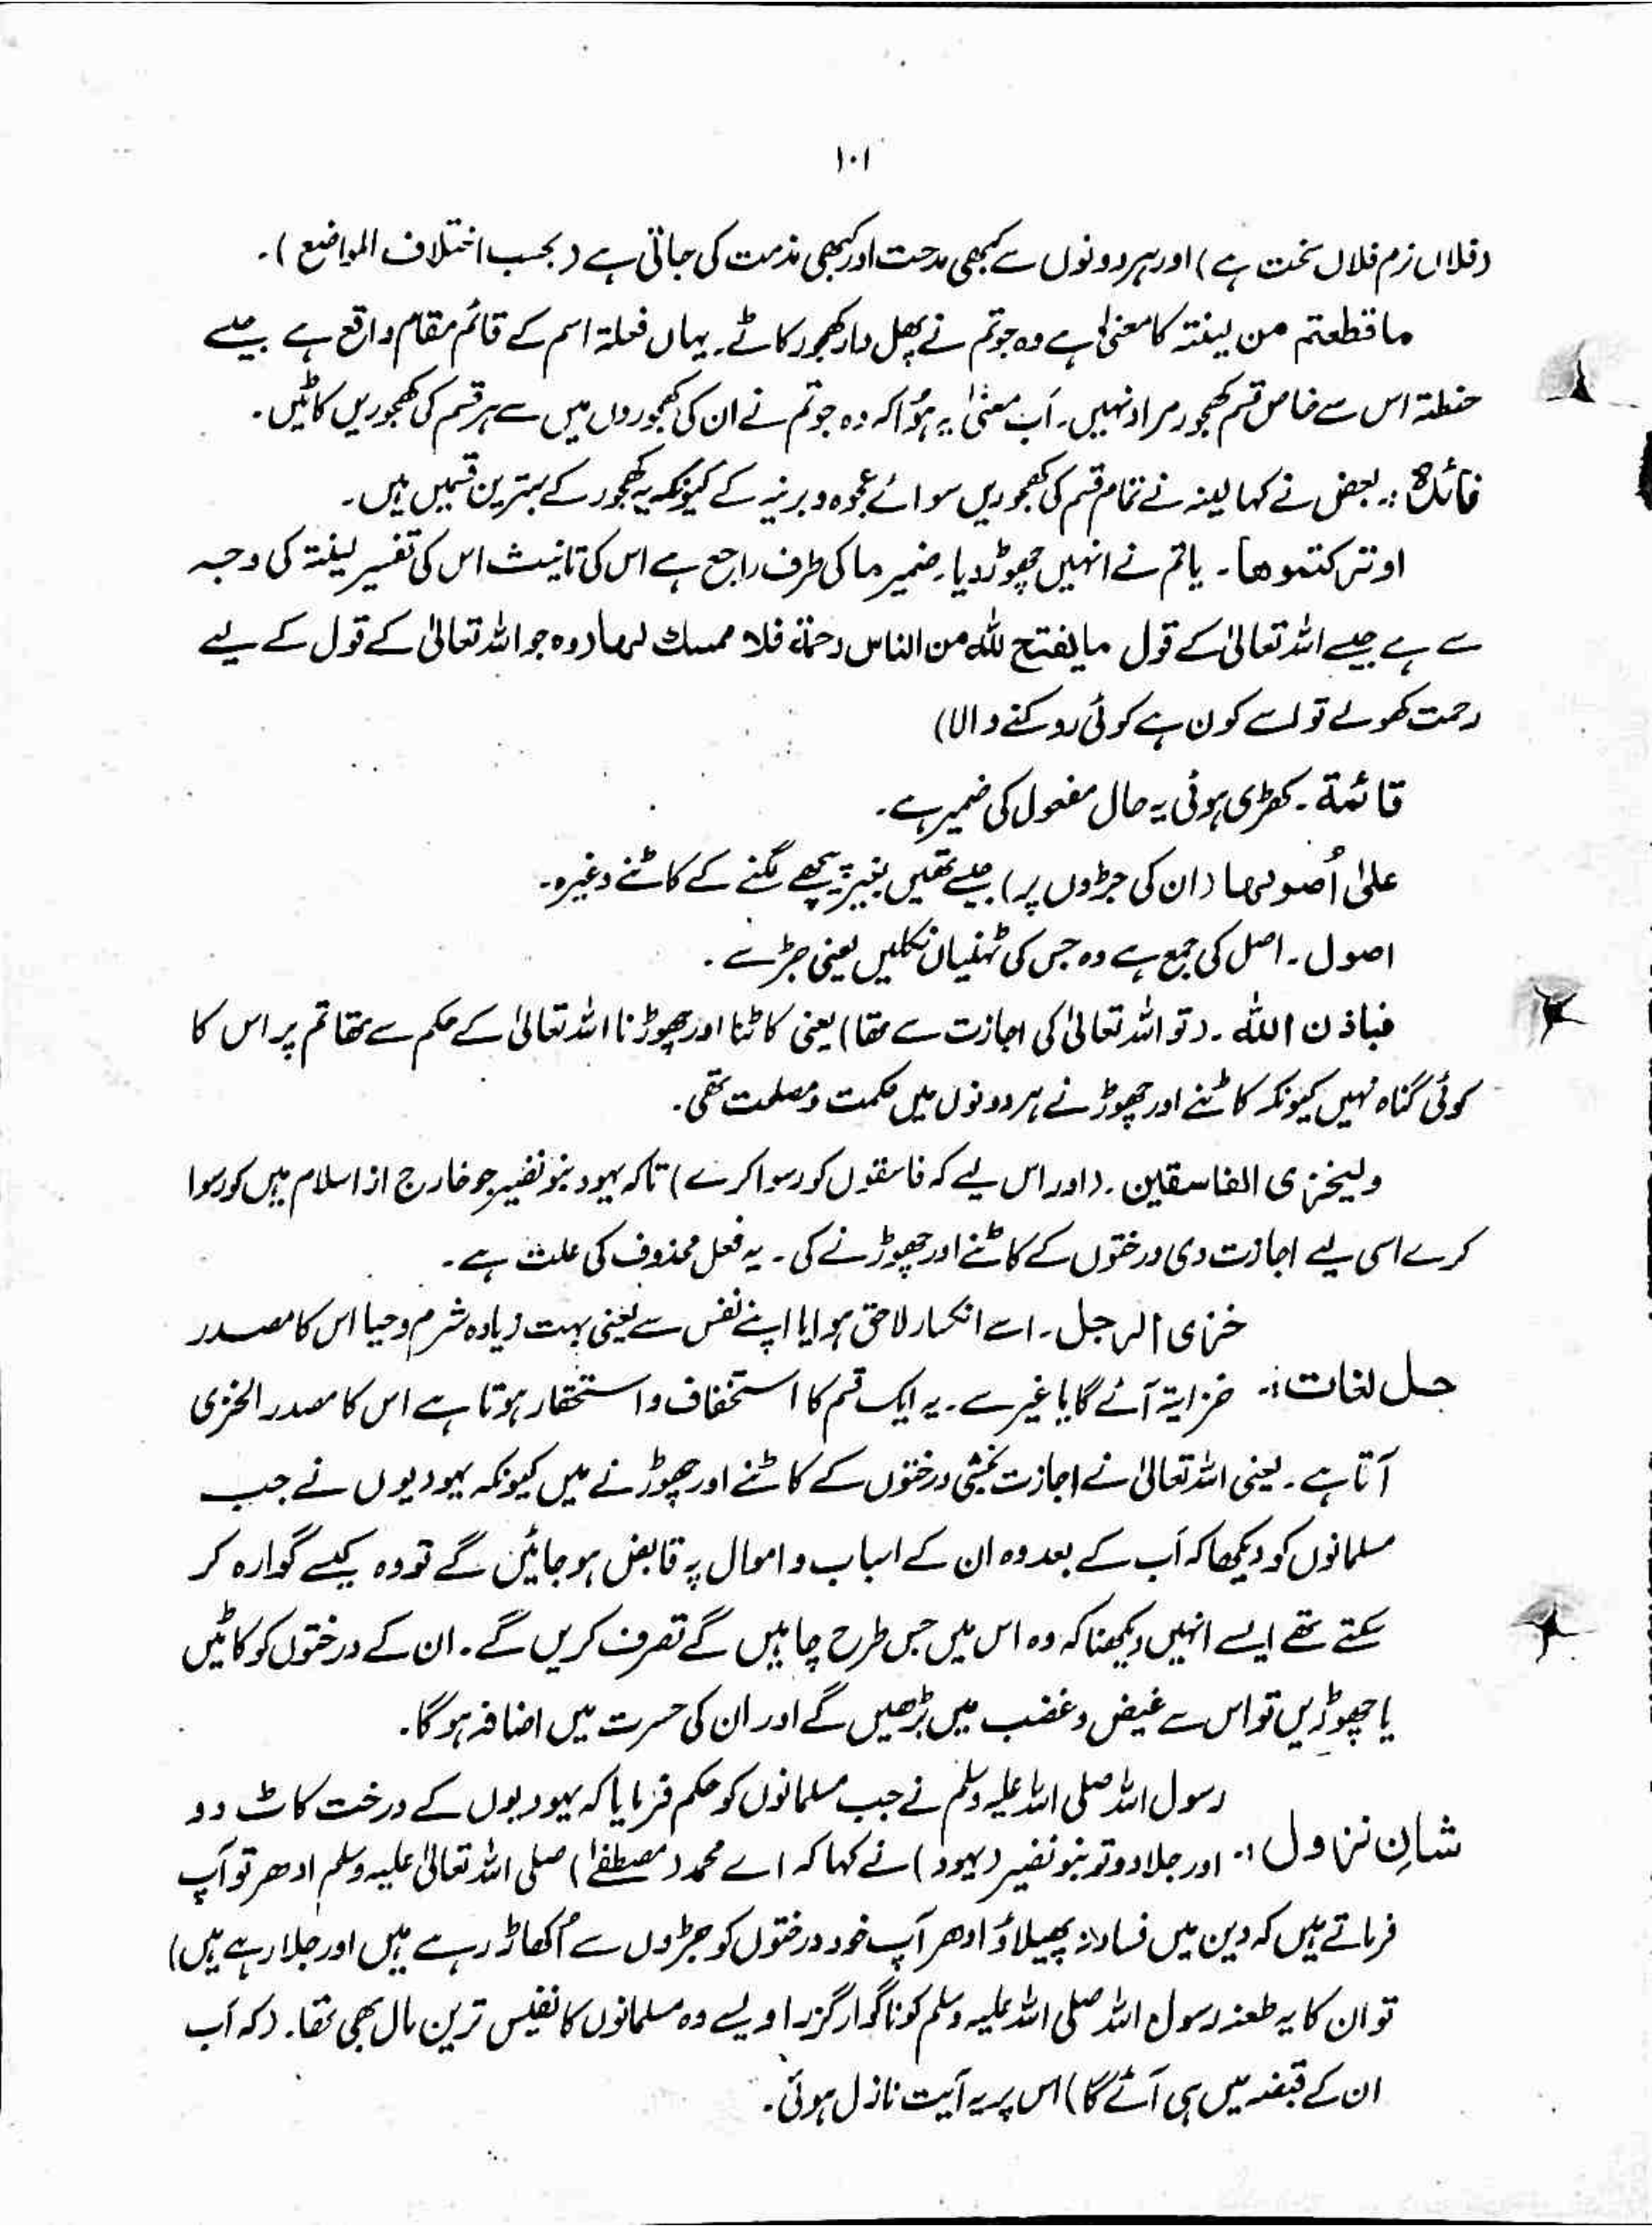 ۱۰۱
(فلاں نرم فلاں سخت ہے) اور ہر دونوں سے کبھی مدحت اور کبھی مذمت کی جاتی ہے (بحسب اختلاف المواضع)۔
ما قطعتم من لینتہ کا معنیٰ ہے وہ جو تم نے پھل دار کھجور کاٹے۔ یہاں فعلة اسم کے قائم مقام واقع ہے جیسے
حنطة اس سے خاص قسم کھجور مراد نہیں۔ اَب معنیٰ یہ ہُوا کہ وہ جو تم نے ان کی کھجوروں میں سے ہر قسم کی کھجوریں کاٹیں۔
فائدہ :۔ بعض نے کہا لینہ نے تمام قسم کی کھجوریں سوائے عجوہ و برنیہ کے کیونکہ یہ کھجور کے بہترین قسمیں ہیں۔
او ترکتموھا۔ یا تم نے انہیں چھوڑ دیا۔ ضمیر ما کی طرف راجع ہے اس کی تانیث اس کی تفسیر لینتہ کی وجہ
سے ہے جیسے اللہ تعالیٰ کے قول ما یفتح للہ من الناس رحمة فلا ممسک لہا (وہ جو اللہ تعالیٰ کے قول کے لیے
رحمت کھولے تو اسے کون ہے کوئی روکنے والا)
قائمة۔ کھڑی ہوئی یہ حال مفعول کی ضمیر ہے۔
علیٰ اُصولہا (ان کی جڑوں پر) جیسے تھیں بغیر پیچھے لگنے کے کاٹنے وغیرہ۔
اصول۔ اصل کی جمع ہے وہ جس کی ٹہنیاں نکلیں یعنی جڑسے۔
فباذن اللہ۔ (تو اللہ تعالیٰ کی اجازت سے تھا) یعنی کاٹنا اور چھوڑنا اللہ تعالیٰ کے حکم سے تھا تم پر اس کا
کوئی گناہ نہیں کیونکہ کاٹنے اور چھوڑنے ہر دونوں میں حکمت و مصلحت تھی۔
ولیخزی الفاسقین۔ (اور اس لیے کہ فاسقوں کو رسوا کرے) تاکہ یہود بنو نضیر جو خارج از اسلام ہیں کو رسوا
کرے اسی لیے اجازت دی درختوں کے کاٹنے اور چھوڑنے کی۔ یہ فعل محذوف کی علت ہے۔
خزی الرجل۔ اسے انکسار لاحق ہوا یا اپنے نفس سے یعنی بہت زیادہ شرم و حیا اس کا مصدر
حل لغات :۔ خزایة آئے گا یا غیر سے۔ یہ ایک قسم کا استخفاف و استحقار ہوتا ہے اس کا مصدر الخزی
آتا ہے۔ یعنی اللہ تعالیٰ نے اجازت بخشی درختوں کے کاٹنے اور چھوڑنے میں کیونکہ یہودیوں نے جب
مسلمانوں کو دیکھا کہ اَب کے بعد وہ ان کے اسباب و اموال پر قابض ہو جائیں گے تو وہ کیسے گوارہ کر
سکتے تھے ایسے انہیں دیکھنا کہ وہ اس میں جس طرح چاہیں گے تصرف کریں گے۔ ان کے درختوں کو کاٹیں
یا چھوڑیں تو اس سے غیض و غضب میں بڑھیں گے اور ان کی حسرت میں اضافہ ہوگا۔
رسول اللہ صلی اللہ علیہ وسلم نے جب مسلمانوں کو حکم فرمایا کہ یہودیوں کے درخت کاٹ دو
شانِ نزول :۔ اور جلا دو تو بنو نضیر (یہود) نے کہا کہ اے محمد (مصطفیٰ) صلی اللہ تعالیٰ علیہ وسلم ادھر تو آپ
فرماتے ہیں کہ دین میں فساد نہ پھیلاؤ ادھر آپ خود درختوں کو جڑوں سے اُکھاڑ رہے ہیں اور جلا رہے ہیں)
تو ان کا یہ طعنہ رسول اللہ صلی اللہ علیہ وسلم کو ناگوار گزرا ویسے وہ مسلمانوں کا نفیس ترین مال بھی تھا۔ (کہ اَب
ان کے قبضہ میں ہی آئے گا) اس پر یہ آیت نازل ہوئی۔